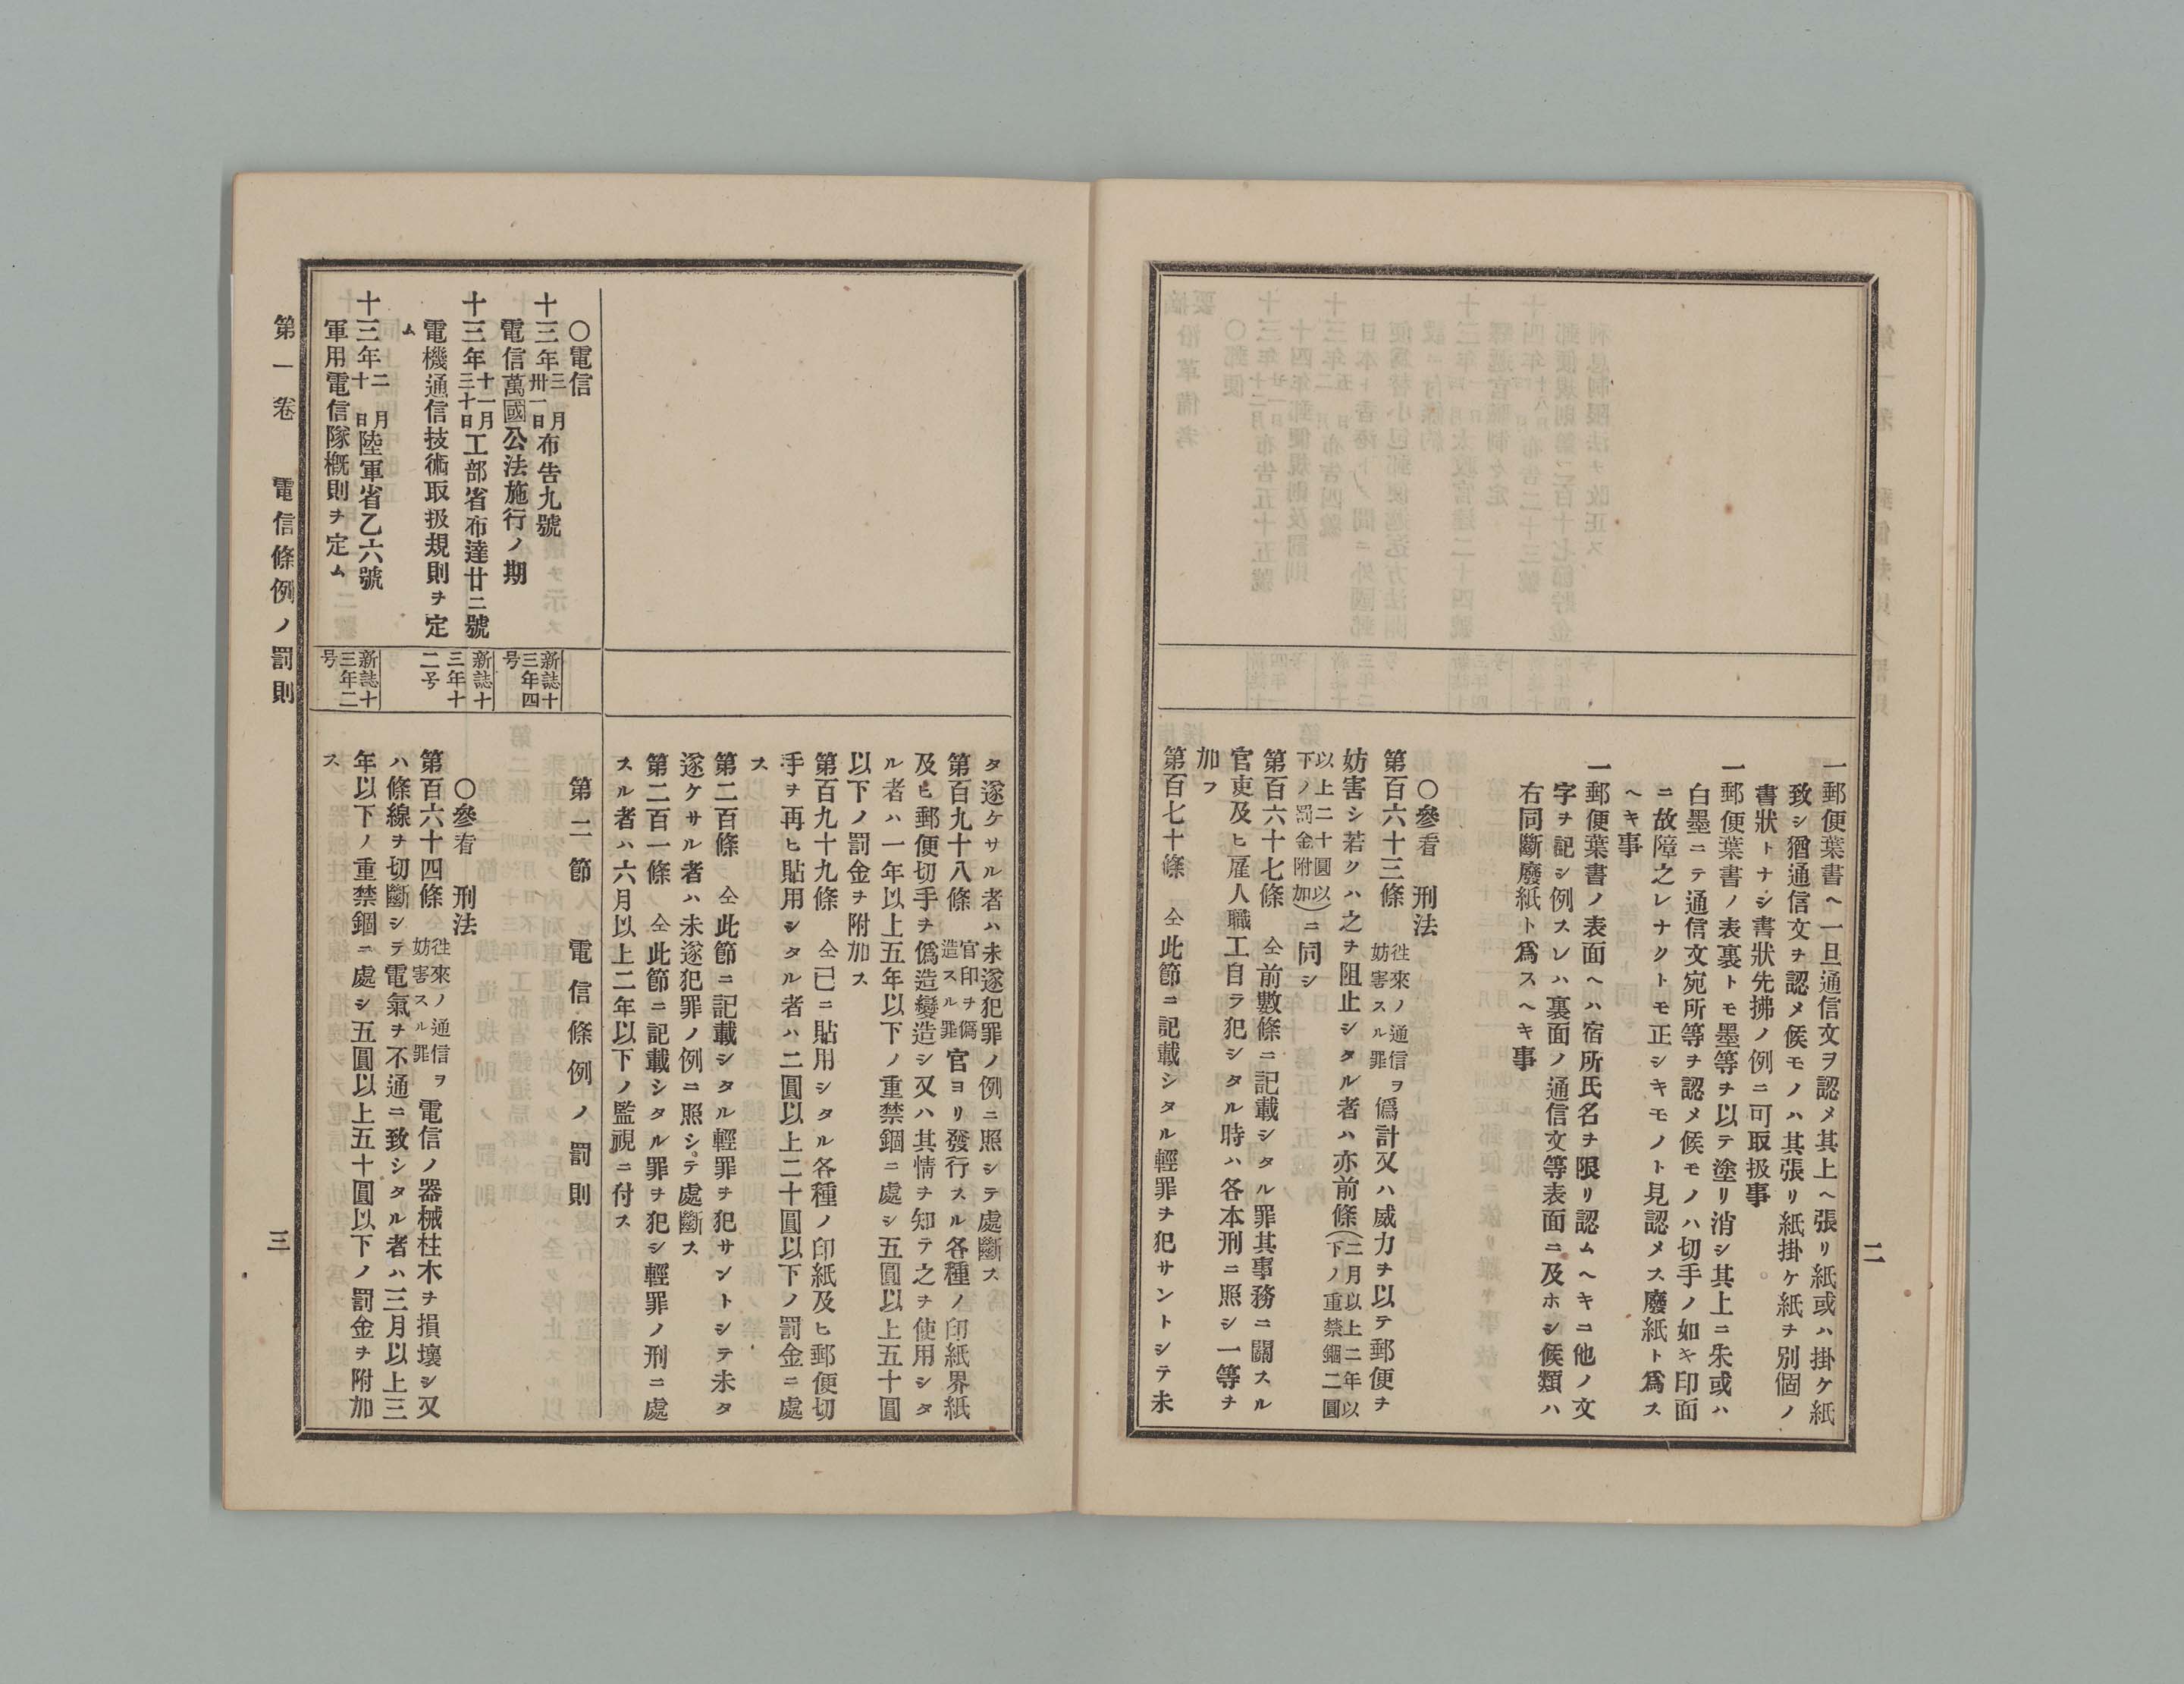 二
一郵便葉書ヘ一旦通信文ヲ認メ其上ヘ張リ紙或ハ掛ケ紙
致シ猶通信文ヲ認メ候モノハ其張リ紙掛ケ紙ヲ別個ノ
書狀トナシ書狀先拂ノ例ニ可取扱事
一郵便葉書ノ表裏トモ墨等ヲ以テ塗リ消シ其上ニ朱或ハ
白墨ニテ通信文宛所等ヲ認メ候モノハ切手ノ如キ印面
ニ故障之レナクトモ正シキモノト見認メス廢紙ト爲ス
ヘキ事
一郵便葉書ノ表面ヘハ宿所氏名ヲ限リ認ムヘキニ他ノ文
字ヲ記シ例スレハ裏面ノ通信文等表面ニ及ホシ候類ハ
右同斷廢紙ト爲スヘキ事
〇參看　刑法
第百六十三條　徃來ノ通信ヲ妨害スル罪　僞計又ハ威力ヲ以テ郵便ヲ
妨害シ若クハ之ヲ阻止シタル者ハ亦前條(二月以上二年以下ノ重禁錮二圓
以上二十圓以下ノ罰金附加)ニ同シ
第百六十七條　仝　前數條ニ記載シタル罪其事務ニ關スル
官吏及ヒ雇人職工自ラ犯シタル時ハ各本刑ニ照シ一等ヲ
加フ
第百七十條　仝　此節ニ記載シタル輕罪ヲ犯サントシテ未
タ遂ケサル者ハ未遂犯罪ノ例ニ照シテ處斷ス
第百九十八條　官印ヲ僞造スル罪　官ヨリ發行スル各種ノ印紙界紙
及ヒ郵便切手ヲ僞造變造シ又ハ其情ヲ知テ之ヲ使用シタ
ル者ハ一年以上五年以下ノ重禁錮ニ處シ五圓以上五十圓
以下ノ罰金ヲ附加ス
第百九十九條　仝　己ニ貼用シタル各種ノ印紙及ヒ郵便切
手ヲ再ヒ貼用シタル者ハ二圓以上二十圓以下ノ罰金ニ處
ス
第二百條　仝　此節ニ記載シタル輕罪ヲ犯サントシテ未タ
遂ケサル者ハ未遂犯罪ノ例ニ照シテ處斷ス
第二百一條　仝　此節ニ記載シタル罪ヲ犯シ輕罪ノ刑ニ處
スル者ハ六月以上二年以下ノ監視ニ付ス
〇電信
十三年三月卅一日布告九號
電信萬國公法施行ノ期
新誌十三年四号
十三年十一月三十日工部省布達廿二號
電機通信技術取扱規則ヲ定
ム
新誌十三年十二号
十三年二月十日陸軍省乙六號
軍用電信隊概則ヲ定ム
新誌十三年二号
第二節　電信條例ノ罰則
〇參看　刑法
第百六十四條　徃來ノ通信ヲ妨害スル罪　電信ノ器械柱木ヲ損壞シ又
ハ條線ヲ切斷シテ電氣ヲ不通ニ致シタル者ハ三月以上三
年以下ノ重禁錮ニ處シ五圓以上五十圓以下ノ罰金ヲ附加
ス
第一卷　電信條例ノ罰則　三